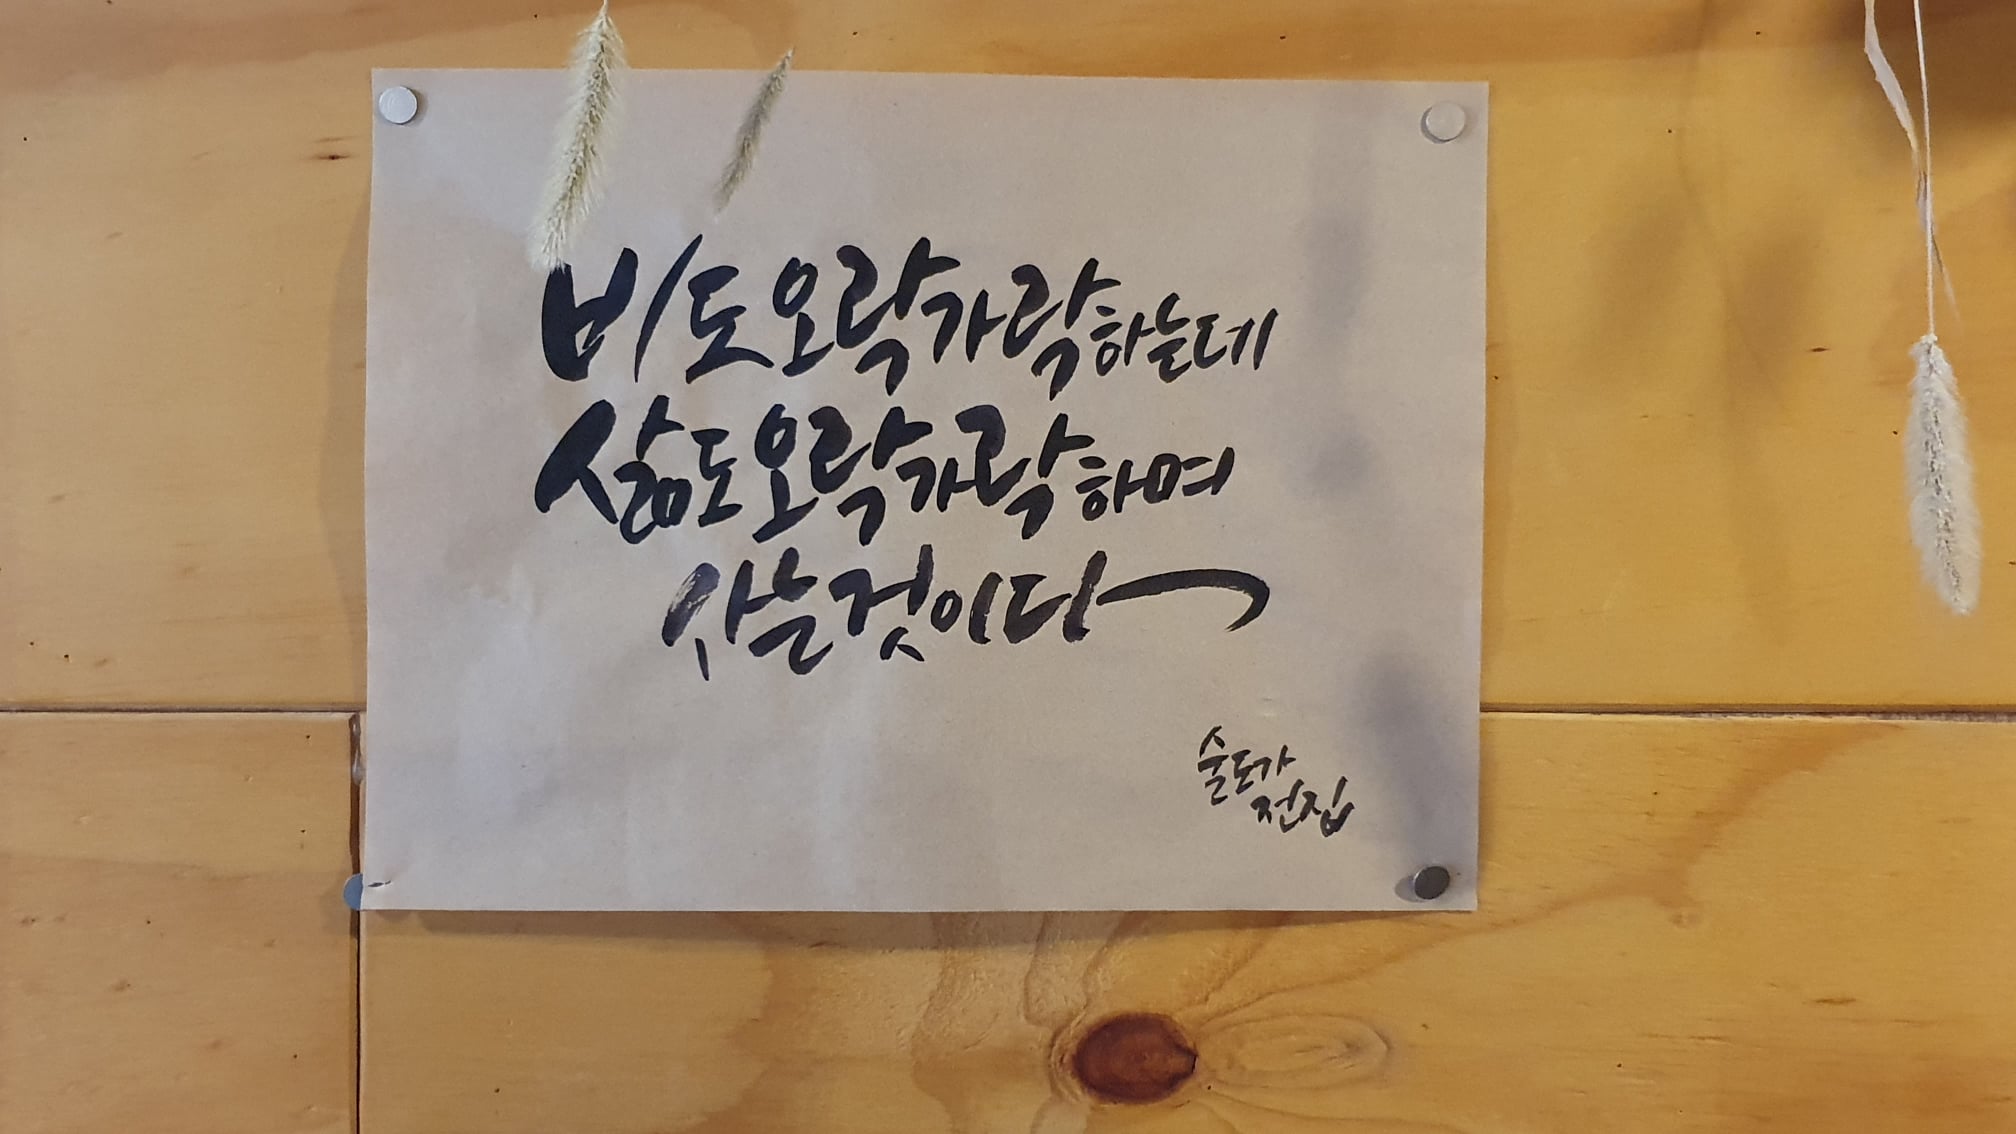 비도 오락가락하는데
삶도 오락가락하며
사는것이다
술도가
전집